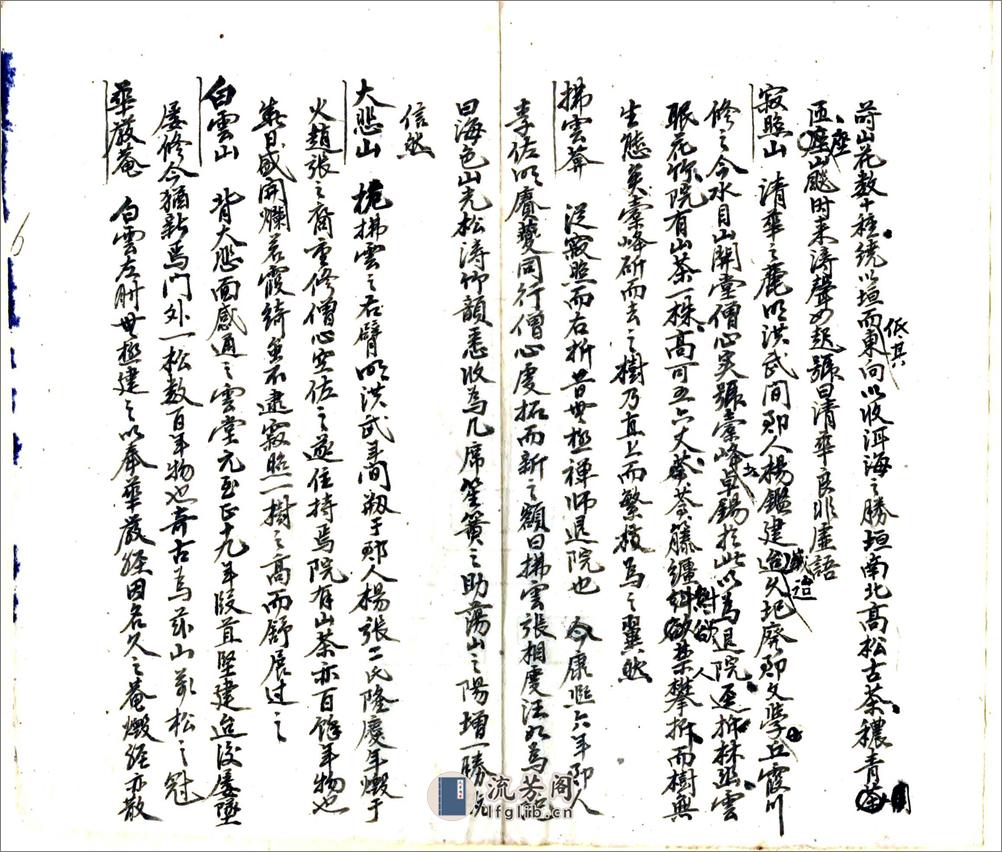 蒔山花数十種繞以垣而東向以收洱海之勝垣南北高松古茶穠青
低其
匝座山颷时来涛聲如起號曰清華良非虛語
座
寂照山 清華之麓明洪武间郡人楊鑑建迨久圮廢郡文學丘霞川
歲迨
修之今水目山開堂僧心实號崇峰卓錫於此以為退院
眠花你院有山茶一株高可五六丈茶藤纏糾欲禁攀拆而樹與
糾欲人
生態矣峰斫而去之樹乃直上而繁枝為之翼然
拂雲菴 従寂照而右折昔無極禅师退院也 今康熙六年郡人
李佐明賡夔同行僧心虔拓而新之額曰拂雲張相度汪為記
曰海色山光松涛竹韻悉收為几席笙簧之助蕩山之陽增一勝矣
信然
大悲山 拂雲之右臂明洪武年间剏于郡人楊張二氏隆慶年燬于
火趙張之裔重修僧心空佐之遂住持焉院有山茶亦百餘年物也
日盛開爛若霞綺无不逮寂照一樹之高而舒展过之
白雲山 背大悲面感通之雲堂元至正十九年段苴堅建迨後屡墜
屡修今猶新焉門外一松数百年物也奇古為蒼山萬松之冠
華嚴菴 白雲左肘無極建之以奉華嚴経因名久之菴燬经亦散
流芳阁
lfglib.cn